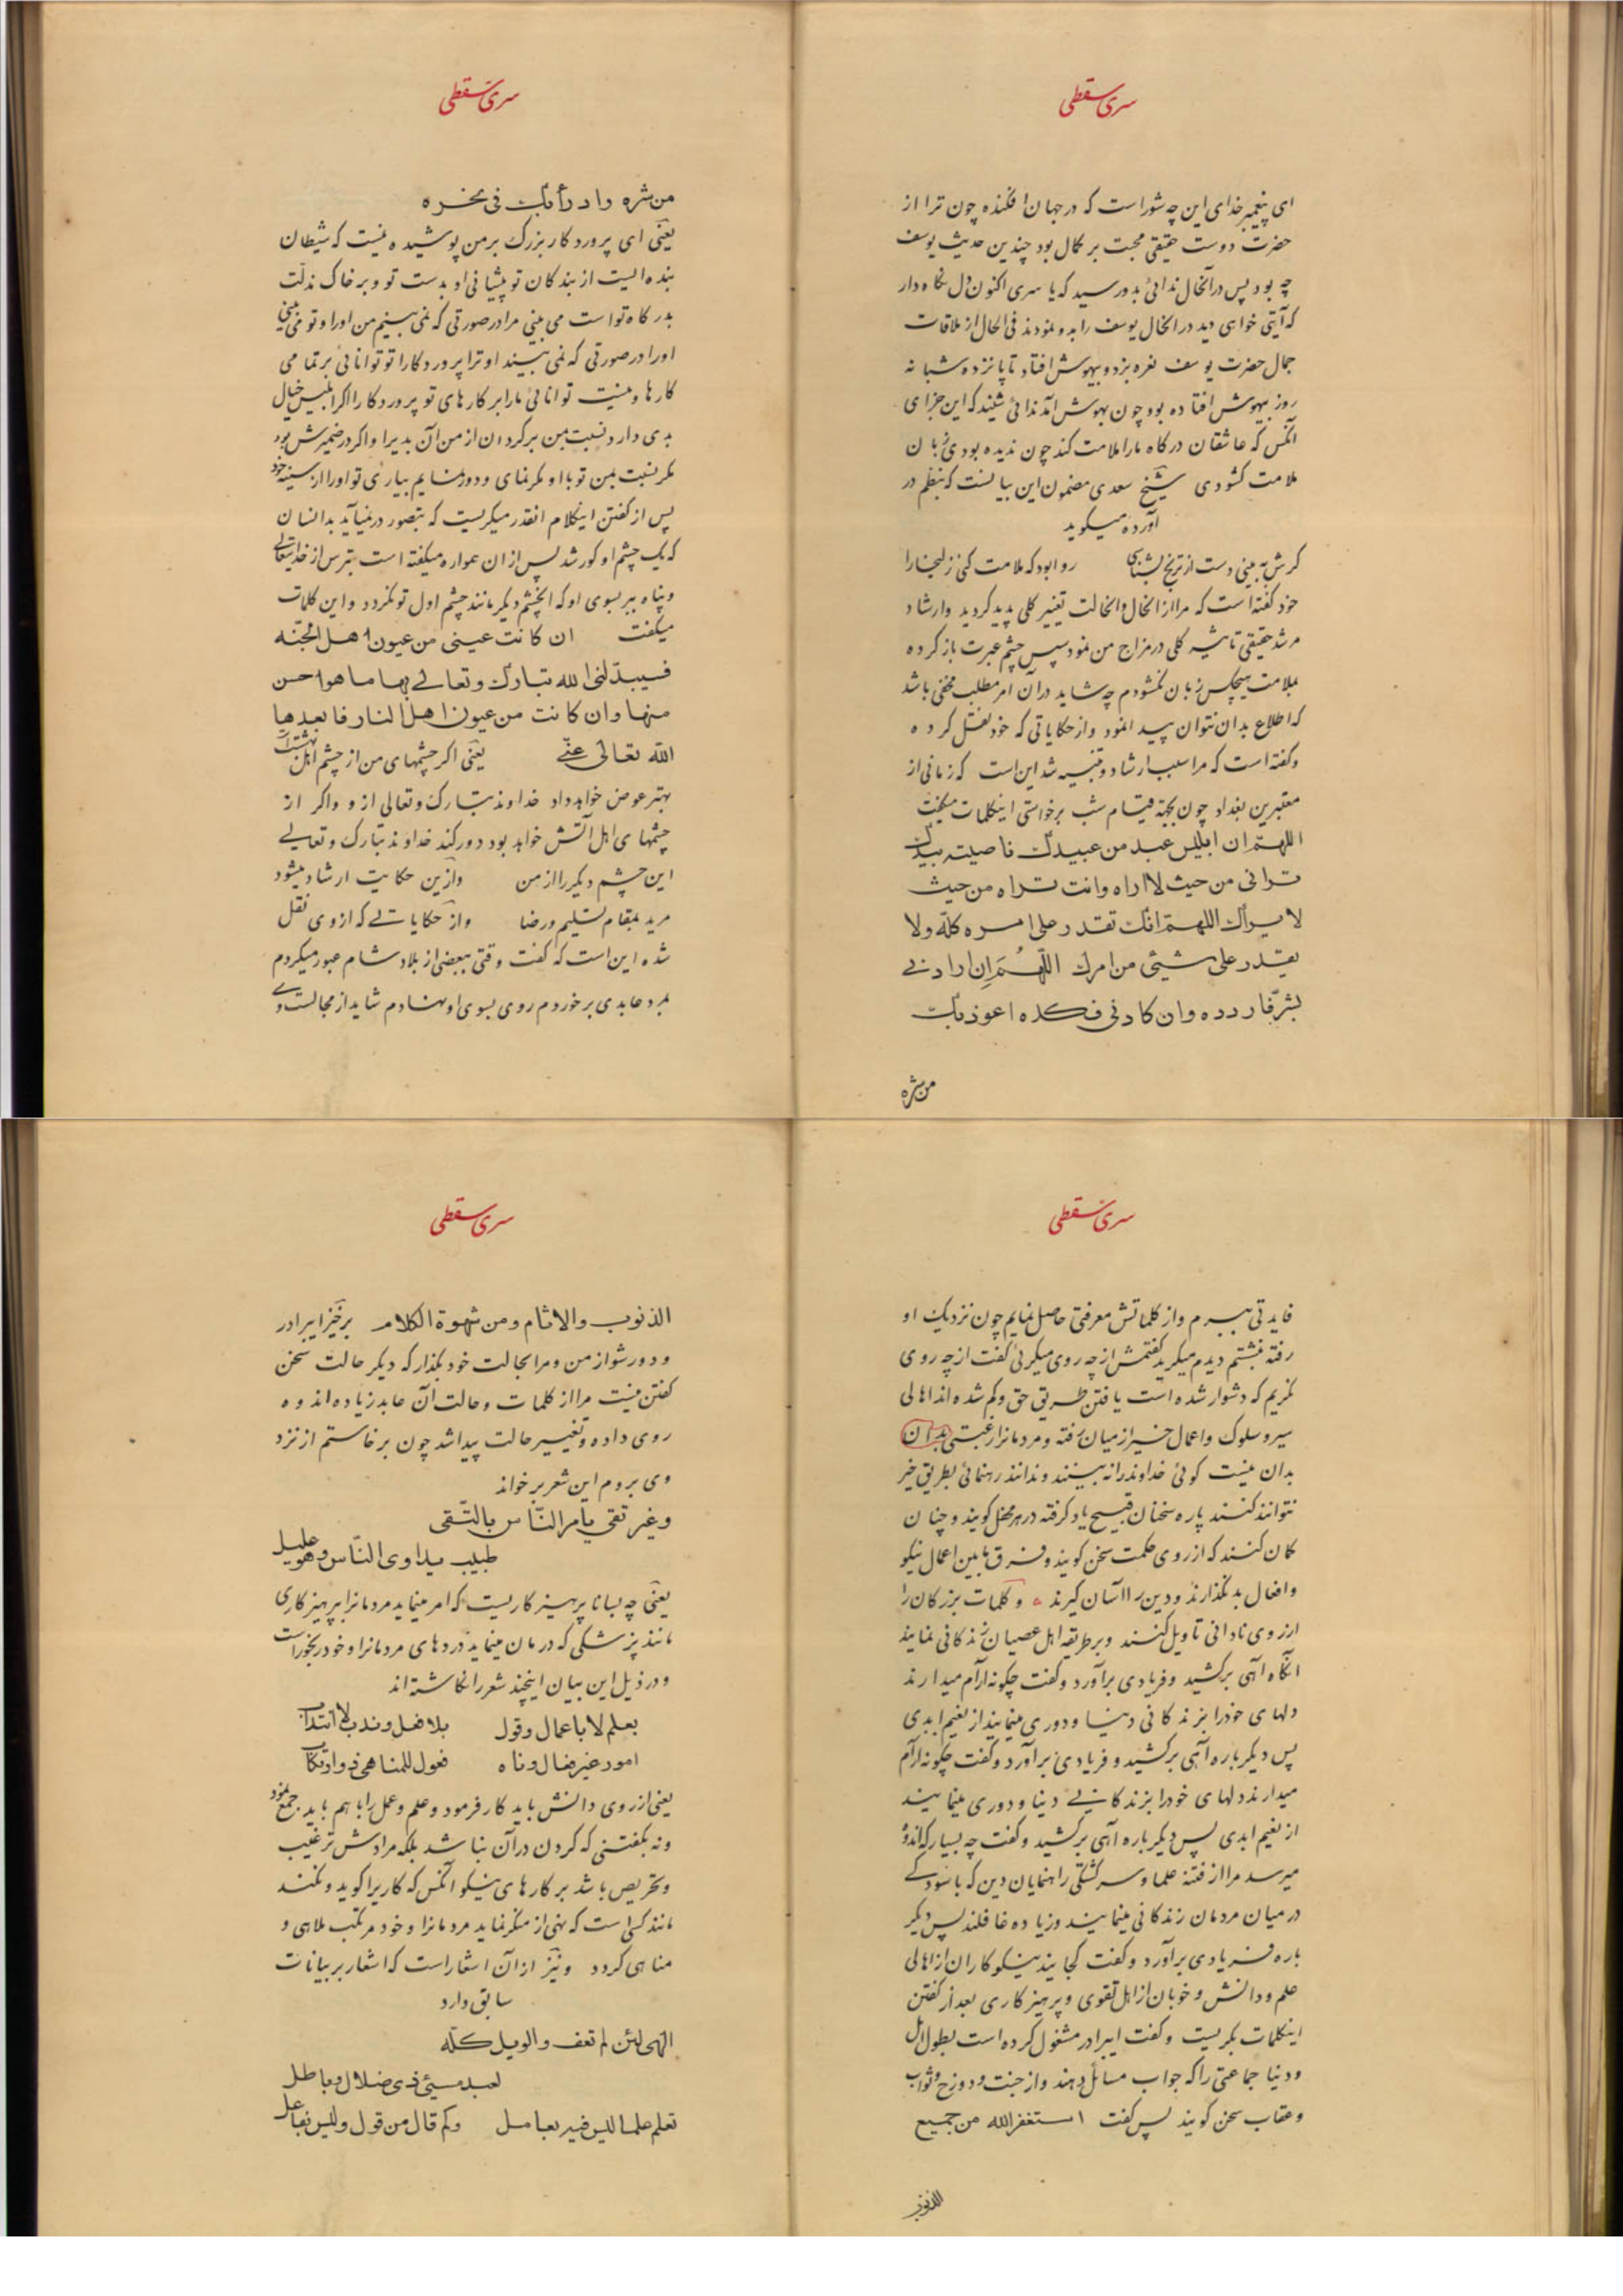 سری سقطی
ای پیغمبر خدای این چه شور است که در جهان افکنده چون ترا از
حضرت دوست حقیقی محبت بر کمال بود چندین حدیث یوسف
چه بود پس در آنحال ندائی بدو رسید که یا سری اکنون دل نگاه دار
که آیتی خواهی دید در انحال یوسف را بدو نمودند فی الحال از ملاقات
جمال حضرت یوسف نعره بزد و بیهوش افتاد تا پانزده شبانه
روز بیهوش افتاده بود چون بهوش آمد ندائی شنید که این جزای
آنکس که عاشقان درگاه ما را ملامت کند چون ندیده بودی زبان
ملامت گشودی شیخ سعدی مضمون این بیانست که بنظم در
آورده میگوید
گرش به بینی و دست از ترنج بشناسی روا بود که ملامت کنی زلیخا را
خود گفته است که مرا از انحال و انحالت تغییر کلی پدید گردید و ارشاد
مرشد حقیقی تاثیر کلی در مزاج من نمود سپس چشم عبرت باز کرده
بملامت هیچکس زبان نگشودم چه شاید در آن امر مطلب مخفی باشد
که اطلاع بدان نتوان پیدا نمود و از حکایاتی که خود نقل کرده
و گفته است که مرا سبب ارشاد و تنبیه شد این است که زمانی از
معتبرین بغداد چون بجهة قیام شب برخواستی اینکلمات میگفت
اللهم ان ابلیس عبد من عبیدک ناصیته بیدک
ترانی من حیث لا اراه وانت تراه من حیث
لا یراک اللهم انک تقدر علی امره کله ولا
یقدر علی شیئی من امرک اللهم ان ارادنی
بشر فاردده وان کادنی فکده اعوذ بک
من شره
سری سقطی
من شره و ادرأ بک فی نحره
یعنی ای پروردگار بزرگ بر من پوشیده نیست که شیطان
بنده ایست از بندگان تو پیشانی او بدست تو و بر خاک مذلت
بدرگاه تو است می بینی مرا در صورتی که نمی بینم من او را و تو می بینی
او را در صورتی که نمی بیند او ترا پروردگارا تو توانائی بر تمامی
کارها و نیست توانائی ما را بر کارهای تو پروردگارا اگر ابلیس خیال
بدی دارد نسبت بمن برگردان از من آن بد را و اگر در ضمیرش بود
مکر نسبت بمن تو با او مکر نمای و دور نمایم بیاری تو او را از سینه خود
پس از گفتن اینکلام انقدر میگریست که بتصور در نمیآید بدانسان
که یک چشم او کور شد پس از ان همواره میگفته است بترس از خدایتعالی
و پناه ببر بسوی او که اینچشم دیگر مانند چشم اول تو نگردد و این کلمات
میگفت ان کانت عینی من عیون اهل الجنه
فسیبدلنی الله تبارک وتعالی بها ما هو احسن
منها وان کانت من عیون اهل النار فابعدها
الله تعالی عنی یعنی اگر چشمهای من از چشم اهل بهشت است
بهتر عوض خواهد داد خداوند تبارک و تعالی از و و اگر از
چشمهای اهل آتش خواهد بود دور کند خداوند تبارک و تعالی
این چشم دیگر را از من و از ین حکایت ارشاد میشود
مرید بمقام تسلیم و رضا و از حکایاتی که از وی نقل
شده این است که گفت وقتی ببعضی از بلاد شام عبور میکردم
بمرد عابدی برخوردم روی بسوی او نهادم شاید از مجالست وی
سری سقطی
فایدتی ببرم و از کلماتش معرفتی حاصل نمایم چون نزدیک او
رفته نشستم دیدم میگرید گفتمش از چه روی میگرئی گفت از چه روی
نگریم که دشوار شده است یافتن طریق حق و کم شده اند اهالی
سیر و سلوک و اعمال خیر از میان رفته و مردمانرا رغبتی بدان
بدان نیست گوئی خداوند را نه بینند و ندانند رهنمائی بطریق خیر
نتوانند کنند پاره سخنان قبیح یاد گرفته در هر محفل گویند و چنان
گمان کنند که از روی حکمت سخن گویند و فرق ما بین اعمال نیکو
و افعال بد نگذارند و دین را آسان گیرند و کلمات بزرگان را
از روی نادانی تاویل کنند و بر طریقه اهل عصیان زندگانی نمایند
آنگاه آهی برکشید و فریادی برآورد و گفت چگونه آرام میدارند
دلهای خود را بزندگانی دنیا و دوری مینمایند از نعیم ابدی
پس دیگر باره آهی برکشید و فریادی برآورد و گفت چگونه آرام
میدارند دلهای خود را بزندگانی دنیا و دوری مینمایند
از نعیم ابدی پس دیگر باره آهی برکشید و گفت چه بسیار که اندوه
میرسد مرا از فتنه علما و سرگشتگی راهنمایان دین که
در میان مردمان زندگانی مینمایند و زیاده غافلند پس دیگر
باره فریادی برآورد و گفت کجایند نیکوکاران از اهالی
علم و دانش و خوبان از اهل تقوی و پرهیزکاری بعد از گفتن
اینکلمات بگریست و گفت ایبرادر مشغول کرده است بطول امل
و دنیا جماعتی را که جواب مسائل دهند و از جنت و دوزخ و ثواب
و عقاب سخن گویند پس گفت استغفر الله من جمیع
الذنوب
سری سقطی
الذنوب والاثام ومن شهوة الکلام برخیز ایبرادر
و دور شو از من و مرا بحالت خود بگذار که دیگر حالت سخن
گفتن نیست مرا از کلمات و حالت آن عابد زیاده اندوه
روی داده و تغییر حالت پیدا شد چون برخاستم از نزد
وی بروم این شعر برخواند
وغیر تقی یامر الناس بالتقی
طبیب یداوی الناس وهو علیل
یعنی چه بسا نا پرهیزکاریست که امر مینماید مردمانرا بپرهیزکاری
مانند پزشکی که درمان مینماید دردهای مردمانرا و خود رنجور است
و در ذیل این بیان اینچند شعر را نگاشته اند
بعلم لا باعمال وقول بلا فعل وندب لا انتداب
امور غیر فعال وناه فعول للمناهی ذو ارتکاب
یعنی از روی دانش باید کار فرمود و علم و عمل را با هم باید جمع نمود
و نه بگفتنی که کردن در آن نباشد بلکه مرادش ترغیب
و تحریص باشد بر کارهای نیکو آنکس که کاریرا گوید و نکند
مانند کسی است که نهی از منکر نماید مردمانرا و خود مرتکب ملاهی و
مناهی گردد و نیز از آن اشعار است که اشعار بر بیانات
سابق دارد
الهی لئن لم تعف والویل کله
لعبد مسیئ ذی ضلال وباطل
تعلم علما لیس فیه بعامل وکم قال من قول ولیس بفاعل